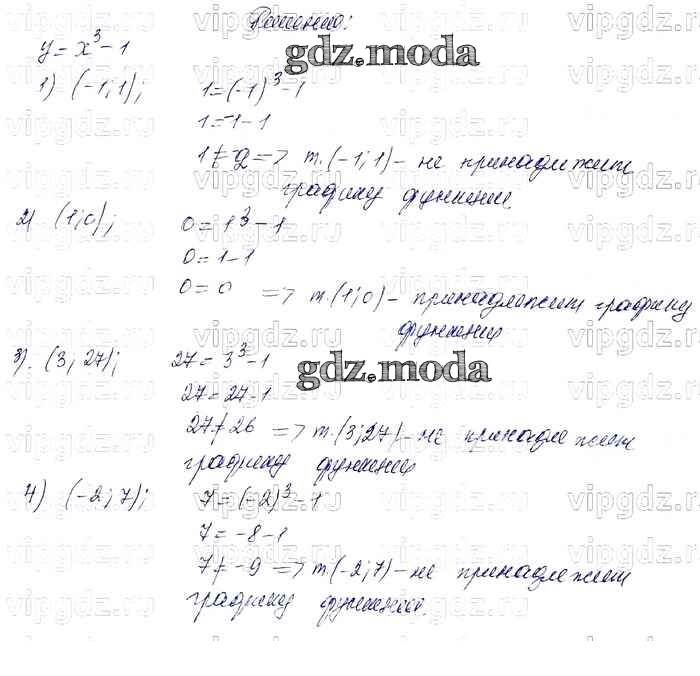 Решение:
y = x³ - 1
gdz.moda
1) (-1; 1);
1 = (-1)³ - 1
1 = -1 - 1
1 ≠ -2 => т. (-1; 1) - не принадлежит
графику функции.
2) (1; 0);
0 = 1³ - 1
0 = 1 - 1
0 = 0 => т. (1; 0) - принадлежит графику
функции
3). (3; 27);
27 = 3³ - 1
gdz.moda
27 = 27 - 1
27 ≠ 26 => т. (3; 27) - не принадлежит
графику функции
4) (-2; 7);
7 = (-2)³ - 1
7 = -8 - 1
7 ≠ -9 => т. (-2; 7) - не принадлежит
графику функции.
vipgdz.ru